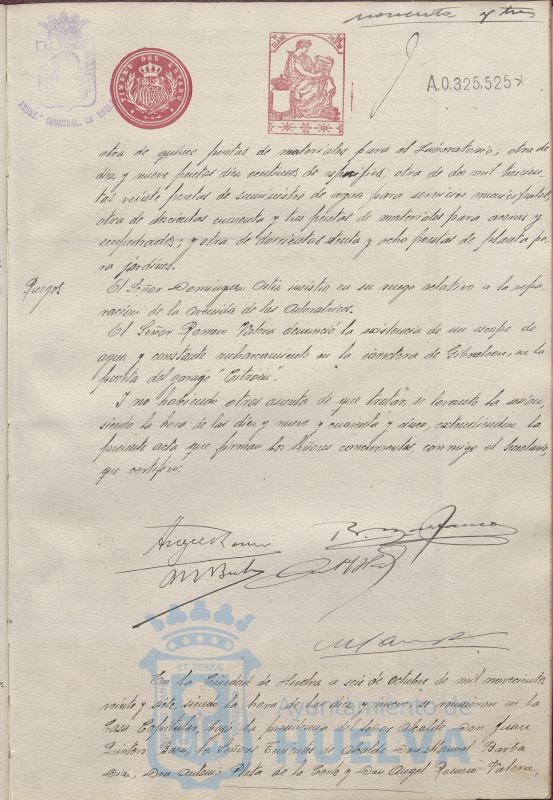 noventa y tres
TIMBRE DEL ESTADO
A.0.325.525*
otra de quince pesetas de materiales para el Laboratorio; otra de
diez y nueve pesetas diez centimos de específicos; otra de dos mil trescien
tas veinte pesetas de suministro de agua para servicios municipales,
otra de doscientas cuarenta y tres pesetas de materiales para aceras y
empedrados; y otra de doscientas treinta y ocho pesetas de planta pa
ra jardines.
Ruegos
El Señor Dominguez Ortiz insistio en su ruego relativo a la repa
racion de la Avenida de las Adoratrices.
El Señor Romero Valera denunció la existencia de un escape de
agua y constante encharcamiento en la carretera de Gibraleón, en la
puerta del garage "Citroën".
I no habiendo otros asuntos de que tratar, se levantó la sesion,
siendo la hora de las diez y nueve y cuarenta y cinco, extendiendose la
presente acta que firman los Señores concurrentes, conmigo el Secretario,
que certifico:
En la Ciudad de Huelva a seis de Octubre de mil novecientos
veinte y siete, siendo la hora de las diez y nueve se reunieron en la
Casa Capitular, bajo la presidencia del Señor Alcalde Don Juan
Quintero Baez los Señores Tenientes de Alcalde Don Manuel Barba
Diaz, Don Antonio Plata de la Corte y Don Angel Romero Valera,
ET TERRAE
Ayuntamiento de
HUELVA